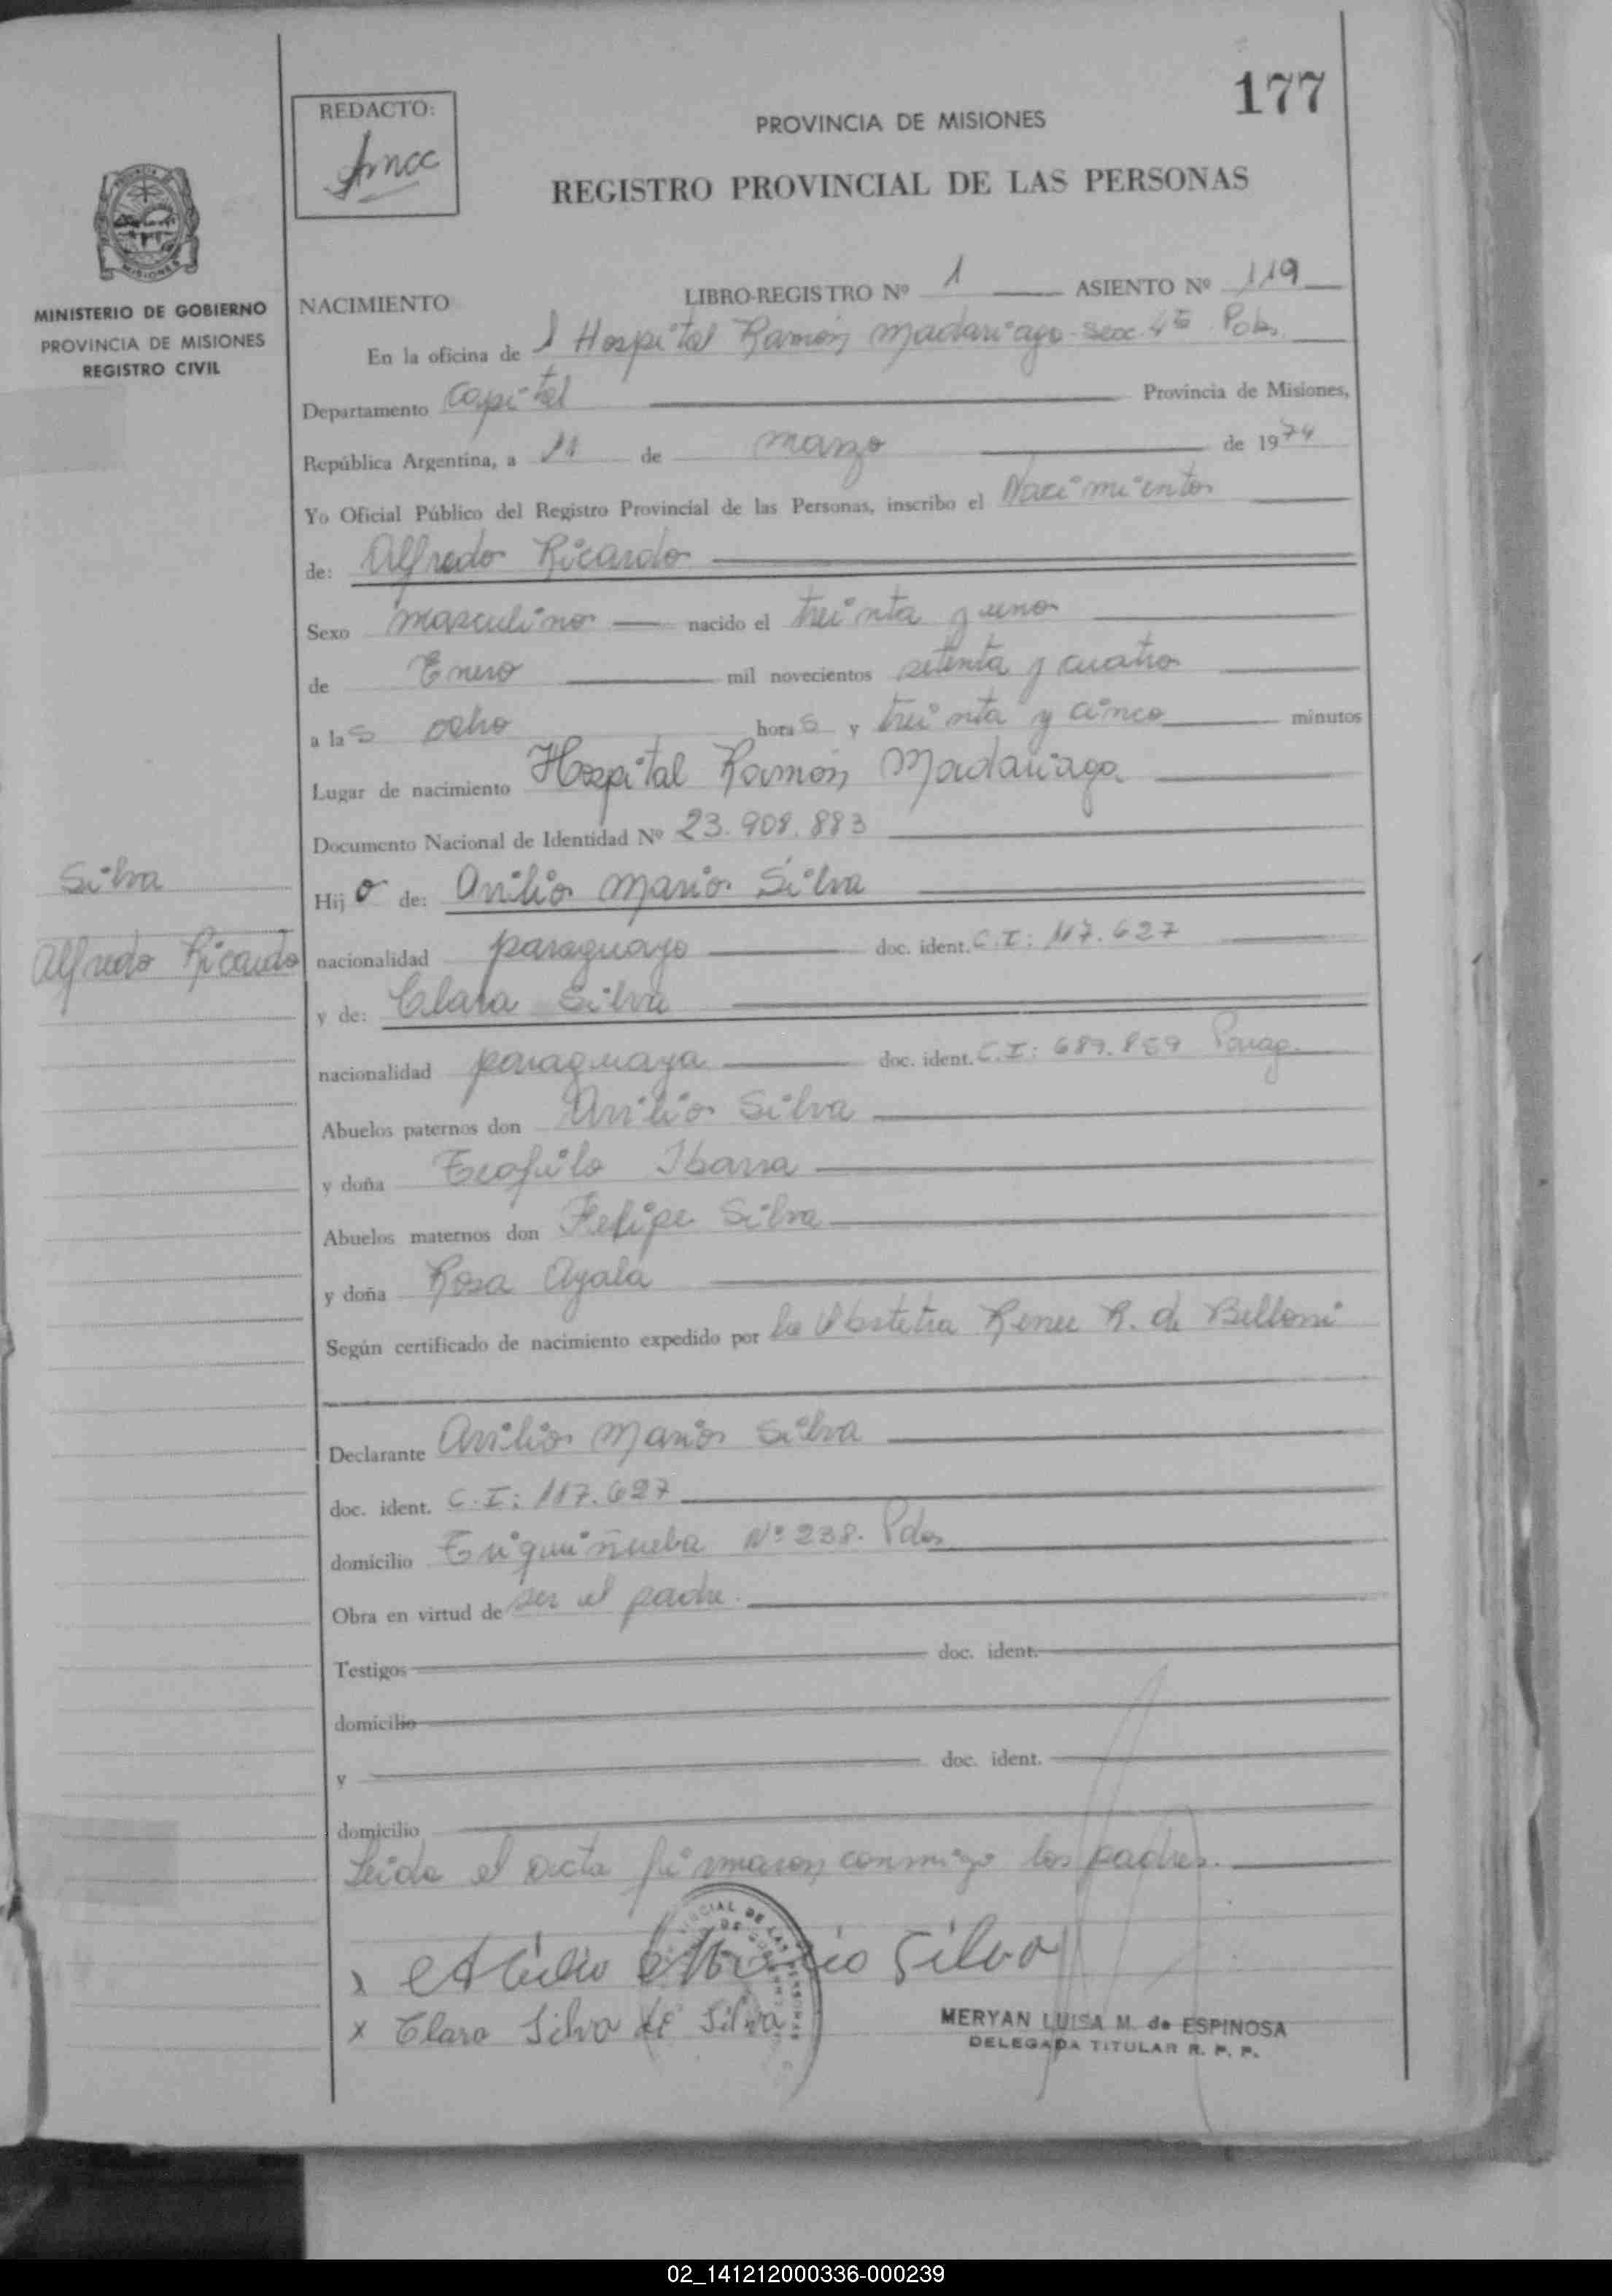 177
REDACTO:
PROVINCIA DE MISIONES
REGISTRO PROVINCIAL DE LAS PERSONAS
MISIONES
MINISTERIO DE GOBIERNO
PROVINCIA DE MISIONES
REGISTRO CIVIL
NACIMIENTO LIBRO-REGISTRO Nº 1 ASIENTO Nº 119
En la oficina de l Hospital Ramón Madariaga - Secc. 4ta
Departamento Capital Provincia de Misiones,
República Argentina, a 11 de marzo de 1974
Yo Oficial Público del Registro Provincial de las Personas, inscribo el Nacimiento
de: Alfredo Ricardo
Sexo masculino nacido el treinta y uno
de Enero mil novecientos setenta y cuatro
a las ocho horas y treinta y cinco minutos
Lugar de nacimiento Hospital Ramón Madariaga
Documento Nacional de Identidad Nº 23.908.883
Silva
Alfredo Ricardo
Hijo de: Arilio Mario Silva
nacionalidad paraguayo doc. ident. C.I: 117.627
y de: Clara Silva
nacionalidad paraguaya doc. ident. C.I: 689.859 Parag.
Abuelos paternos don Arilio Silva
y doña Teofila Ibarra
Abuelos maternos don Felipe Silva
y doña Rosa Ayala
Según certificado de nacimiento expedido por la Obstetra Renee R. de Belloni
Declarante Arilio Mario Silva
doc. ident. C.I: 117.627
domicilio Nº 238. Pdas
Obra en virtud de ser el padre.
Testigos doc. ident.
domicilio
y doc. ident.
domicilio
Leida el acta firmaron conmigo los padres.
x Atilio Mario Silva
x Clara Silva de Silva
MERYAN LUISA M. de ESPINOSA
DELEGADA TITULAR R. P. P.
02_141212000336-000239